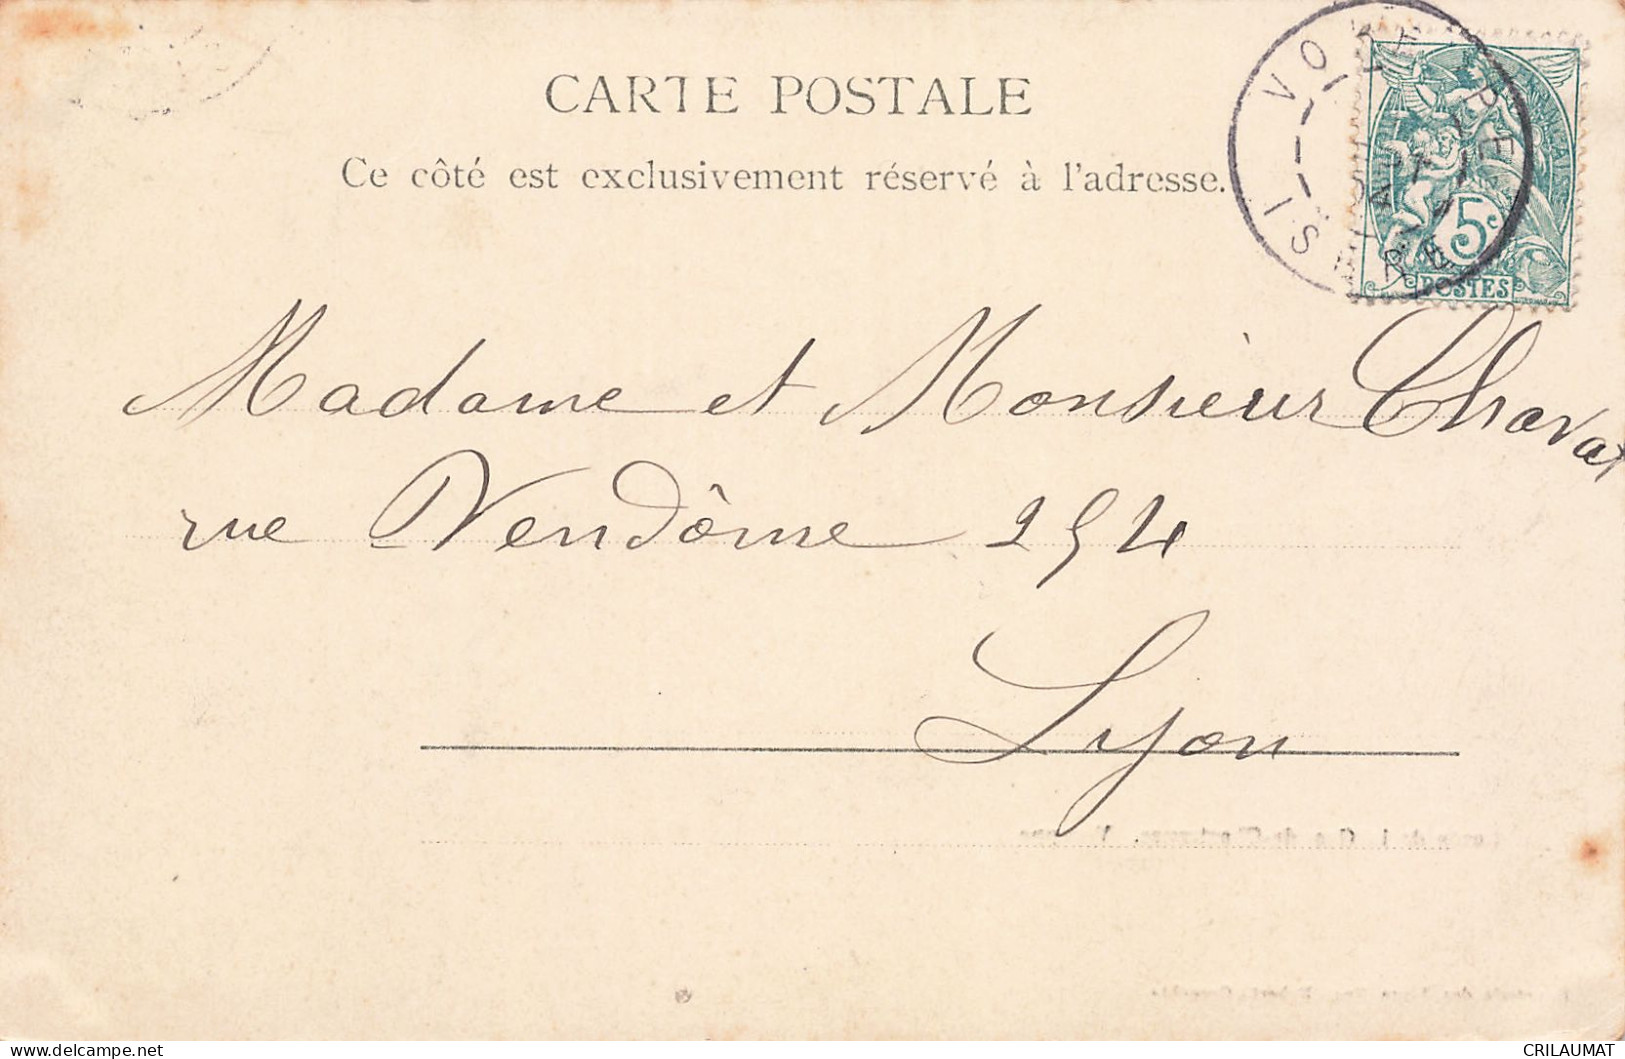 CARTE POSTALE
Ce côté est exclusivement réservé à l'adresse.
VOREPPE
ISÈRE
5c
POSTES
Madame et Monsieur Chavat
rue Vendôme 254
Lyon
CRILAUMAT